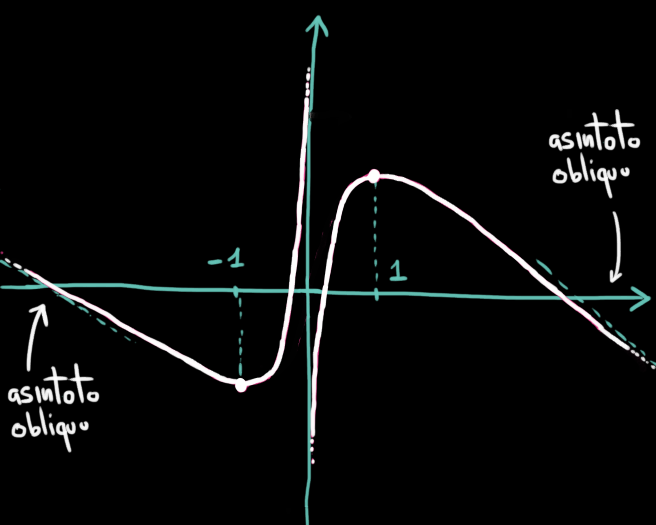 asintoto
obliquo
-1
1
asintoto
obliquo